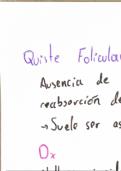 Quiste Folicular
Ausencia de
reabsorción de
→ Suele ser as
Dx